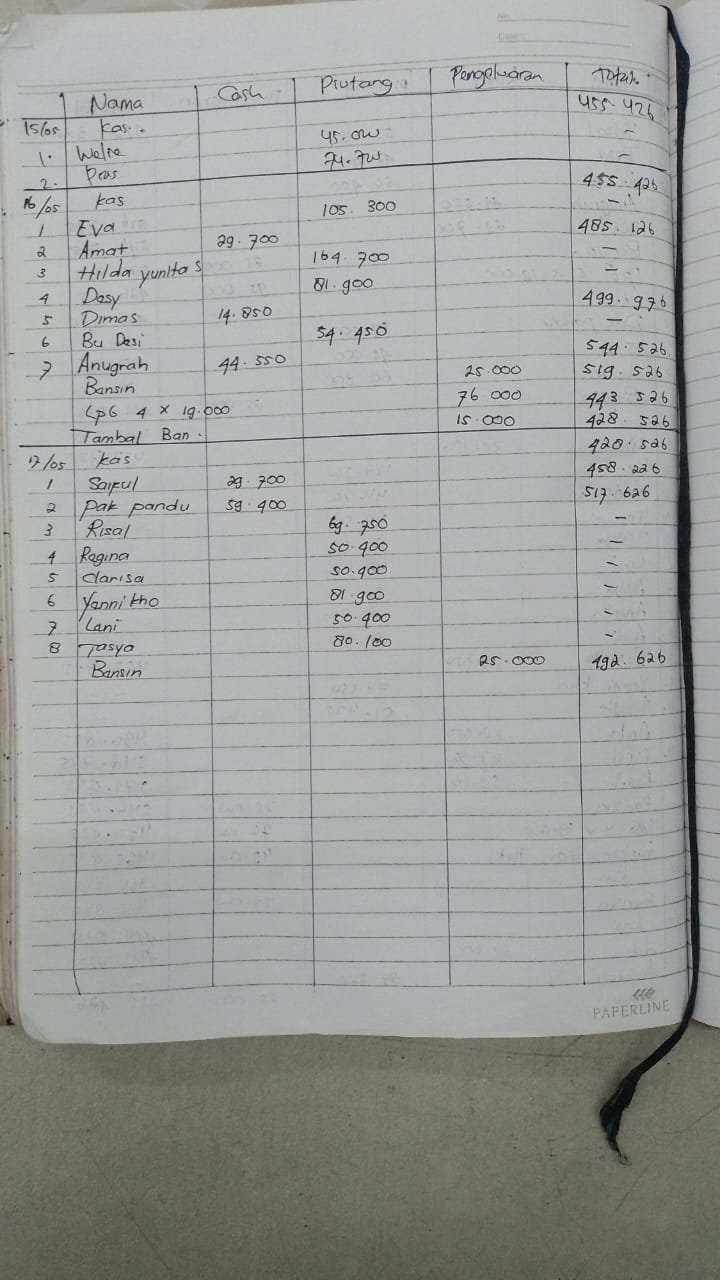 No.
Date:
Nama Cash Piutang Pengeluaran Total.
15/05 Kas.. 455.426
1. Welre 45.000 -
2. Pras 74.700 -
16/05 Kas 455.426
1 Eva 105.300 -
2 Amat 29.700 485.126
3 Hilda yunitas 164.700 -
4 Desy 81.900 -
5 Dimas 14.850 499.976
6 Bu Desi 54.450 -
7 Anugrah 44.550 544.526
Bansin 25.000 519.526
LPG 4 x 19.000 76 000 443 526
Tambal Ban. 15.000 428.526
17/05 kas 428.526
1 Saiful 29.700 458.226
2 pak pandu 59.400 517.626
3 Risal 69.750 -
4 Regina 50.400 -
5 Clarisa 50.400 -
6 Yannikho 81.900 -
7 Lani 50.400 -
8 Tasya 80.100 -
Bansin 25.000 492.626
PAPERLINE